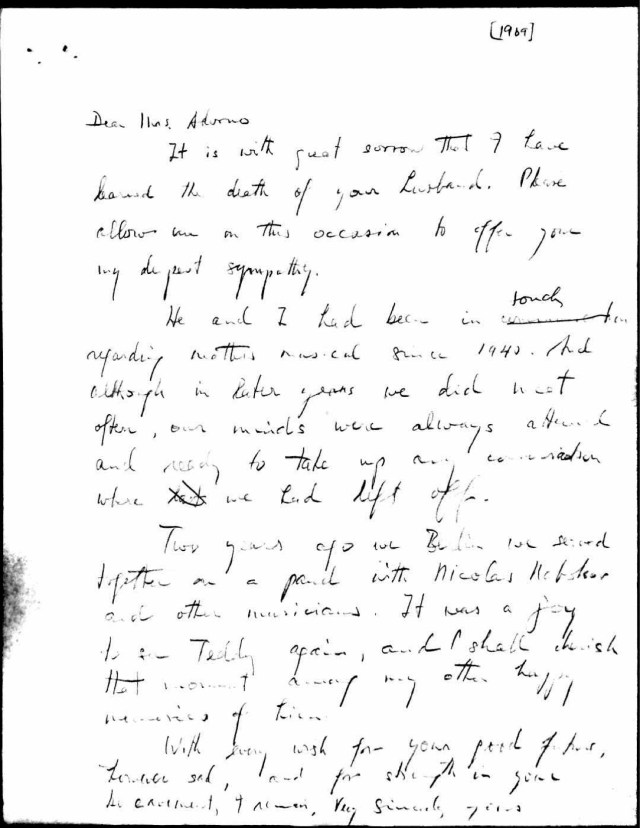 [1969]
Dear Mrs. Adorno
It is with great sorrow that I have
learned the death of your husband. Please
allow me on this occasion to offer you
my deepest sympathy.
touch
He and I had been in communication
regarding matters musical since 1940. And
although in later years we did meet
often, our minds were always attuned
and ready to take up any conversation
where we had left off.
Two years ago in Berlin we served
together on a panel with Nicolas Nabokov
and other musicians. It was a joy
to see Teddy again, and I shall cherish
that moment among my other happy
memories of him.
With every wish for your good future,
however sad, and for strength in your
bereavement, I remain, very sincerely yours